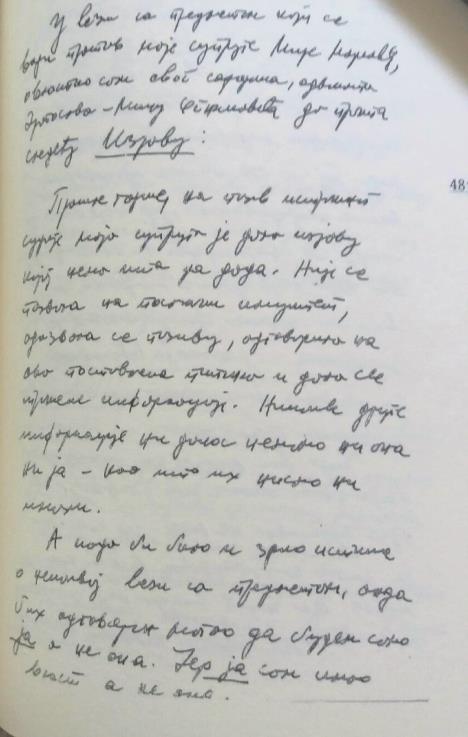 У вези са предметом који се
води против моје супруге Мире Марковић,
овластио сам свог сарадника, адвоката
да прочита
следећу Изјаву:
481
Прошле године, на позив истражног
судије моја супруга је дала изјаву
којој нема шта да дода. Није се
позвала на посланички имунитет,
одазвала се позиву, одговорила на
сва постављена питања и дала све
тражене информације. Никакве друге
информације ни данас немамо ни она
ни ја – као што их нисмо ни
имали.
А када би било и зрно истине
о некаквој вези са предметом, онда
бих одговоран могао да будем само
ја а не она. Јер ја сам имао
власт а не она.